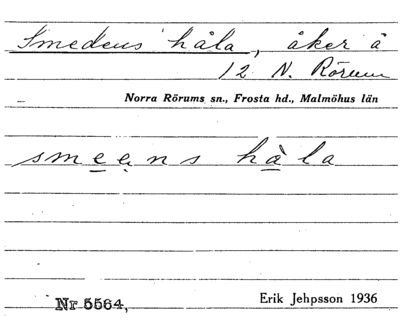 Smedens håla, åker å
12 N. Rörum
Norra Rörums sn., Frosta hd., Malmöhus län
smeens håla
Nr 5564,
Erik Jehpsson 1936